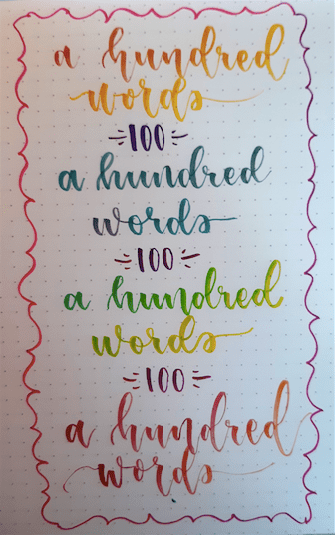 a hundred
words
100
a hundred
words
100
a hundred
words
100
a hundred
words